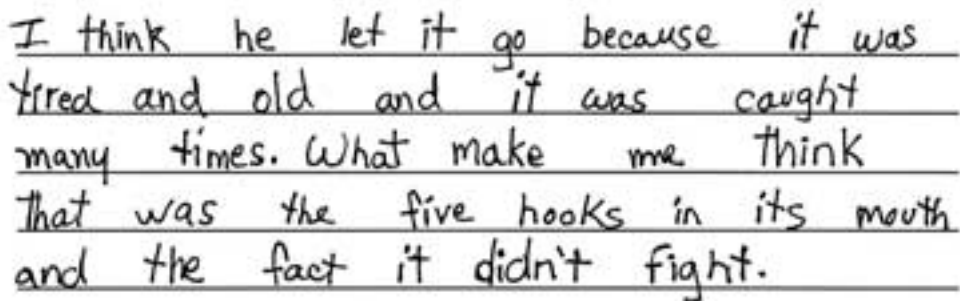 I think he let it go because it was
tired and old and it was caught
many times. What make me think
that was the five hooks in its mouth
and the fact it didn't fight.